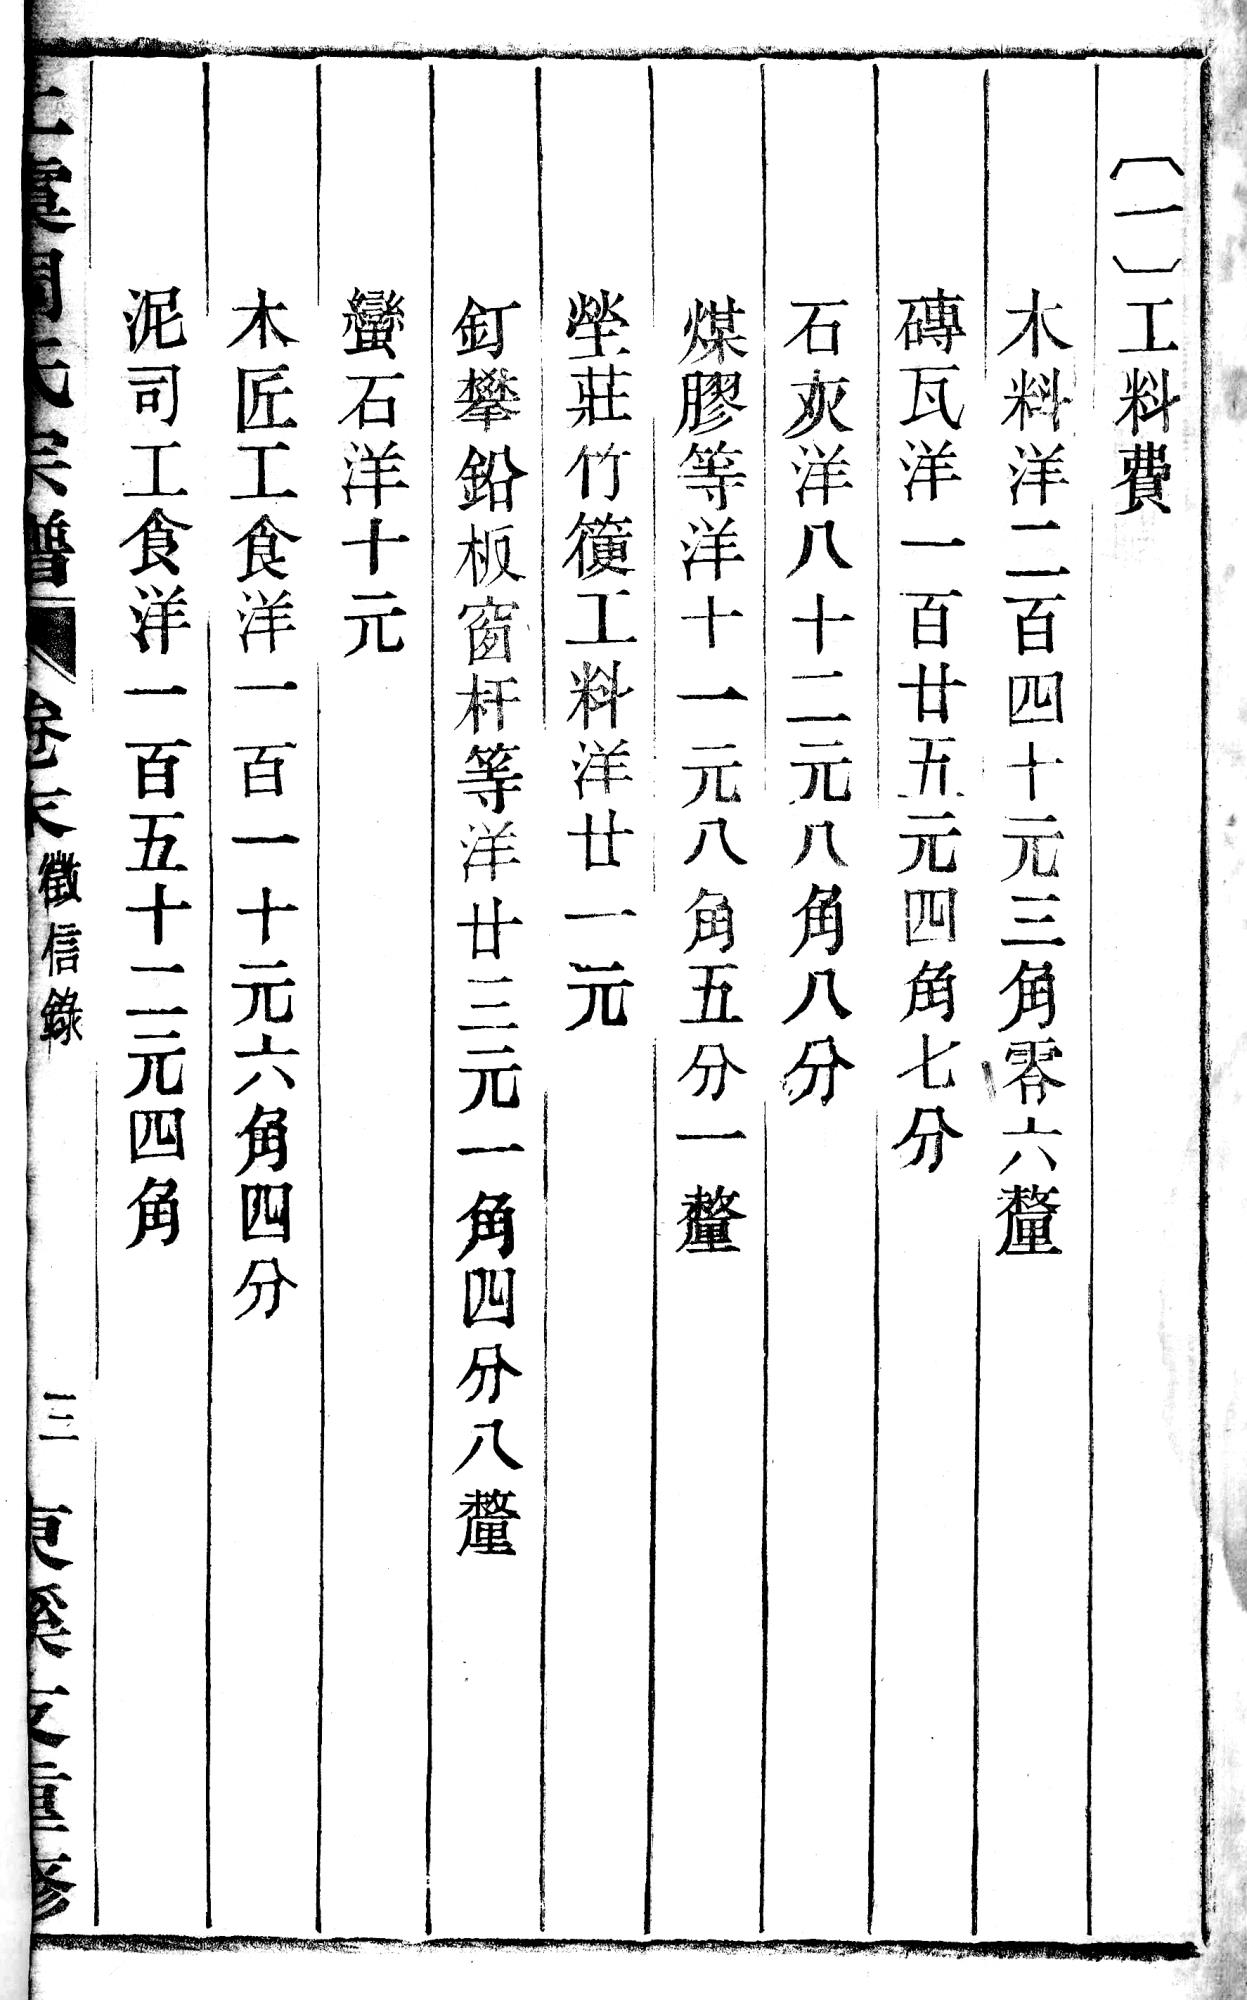 〔一〕工料費
木料洋二百四十元三角零六釐
磚瓦洋一百廿五元四角七分
石灰洋八十二元八角八分
煤膠等洋十一元八角五分一釐
塋莊竹簧工料洋廿一元
釘攀鉛板窗杆等洋廿三元一角四分八釐
蠻石洋十元
木匠工食洋一百一十元六角四分
泥司工食洋一百五十二元四角
上虞周氏宗譜
卷末 徵信錄
三
重修